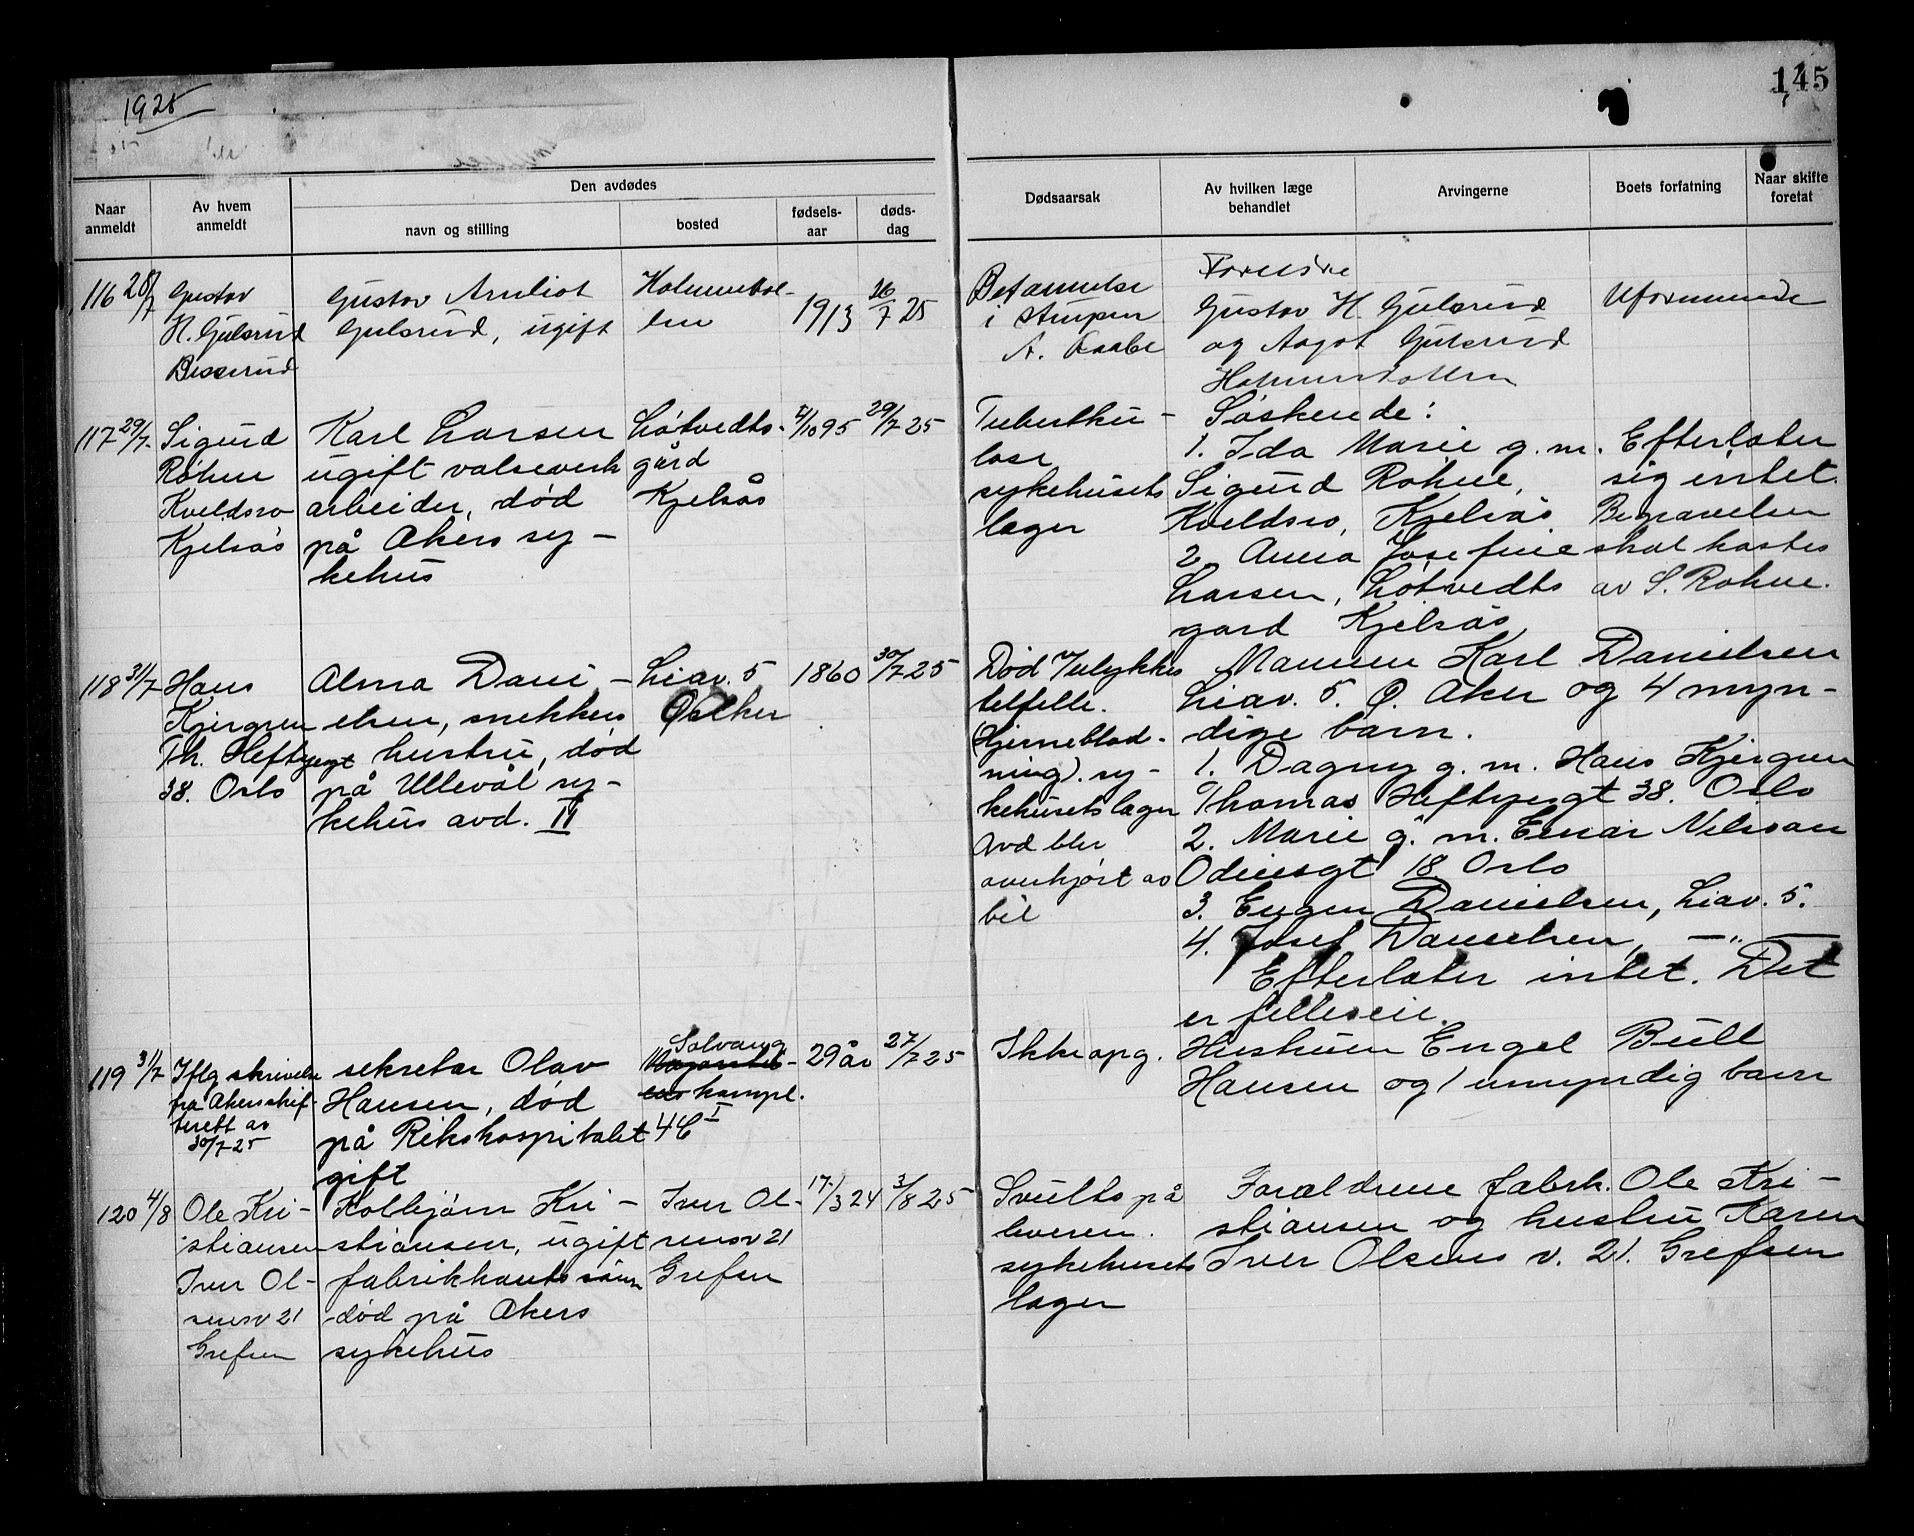 1925
145
Den avdødes
Naar anmeldt
Av hvem anmeldt
navn og stilling
bosted
fødsels-aar
døds-dag
Dødsaarsak
Av hvilken læge behandlet
Arvingerne
Boets forfatning
Naar skifte foretat
116 28/7
Gustav
H. Gulsrud
Besserud
Gustav Arnliot
Gulsrud, ugift
Holmenkol-
len
1913
26/7 25
Betennelse
i strupen
A. Raabe
Foreldre
Gustav H. Gulsrud
og Aagot Gulsrud
Holmenkollen
Uformuende
117 29/7.
Sigurd
Rohne
Kveldsro
Kjelsås
Karl Larsen
ugift valseverk
arbeider, død
på Akers sy-
kehus
Løtvedts-
gård
Kjelsås
/10 95
29/7 25
Tuberku-
lose
sykehusets
læger
Søskende:
1. Ida Marie g. m.
Sigurd Rohne,
Kveldsro, Kjelsås
2 Anna Josefine
Larsen, Løtvedts
gard Kjelsås
Efterlater
sig intet.
Begravelsen
skal kostes
av S. Rohne.
118 31/7
Hans
Kjergren
Th. Heftyesgt
38. Oslo
Alma Dani-
elsen, snekkers
hustru, død
på Ullevål sy-
kehus avd. II
Liav. 5
Ø. Aker
1860
30/7 25
Død v/ulykkes
telfelle.
(Hjerneblød-
ning). sy-
kehusets læger
Avd blev
overkjørt av
bil
Mannen Karl Danielsen
Liav. 5. Ø. Aker og 4 myn-
dige barn.
1. Dagny g. m. Hans Kjergren
Thomas Heftyesgt 38. Oslo
2. Marie g. m. Einar Nilsson
Odinsgt 18 Oslo
3. Eugen Danielsen, Liav. 5.
4. Josef Danielsen, — " —
Efterlater intet. Det
er felleseie.
119 31/7
Iflg skrivelse
fra Akers skif-
terett av
30/7-25
sekretær Olav
Hansen, død
på Rikshospitalet
gift
Solvang
kompl.
4C I
29 år
27/7 25
Ikke opg.
Hustruen Engel Bull
Hansen og 1 umyndig barn
120 4/8
Ole Kri-
stiansen
Iver Ol-
sensv 21
Grefsen
Kolbjørn Kri-
stiansen, ugift
fabrikkants sønn
død på Akers
sykehus
Iver Ol-
sensv 21
Grefsen
17/3 24
3/8 25
Svulst på
leveren.
sykehusets
læger
Foreldrene fabrk. Ole Kri-
stiansen og hustru Karen
Iver Olsens v. 21. Grefsen